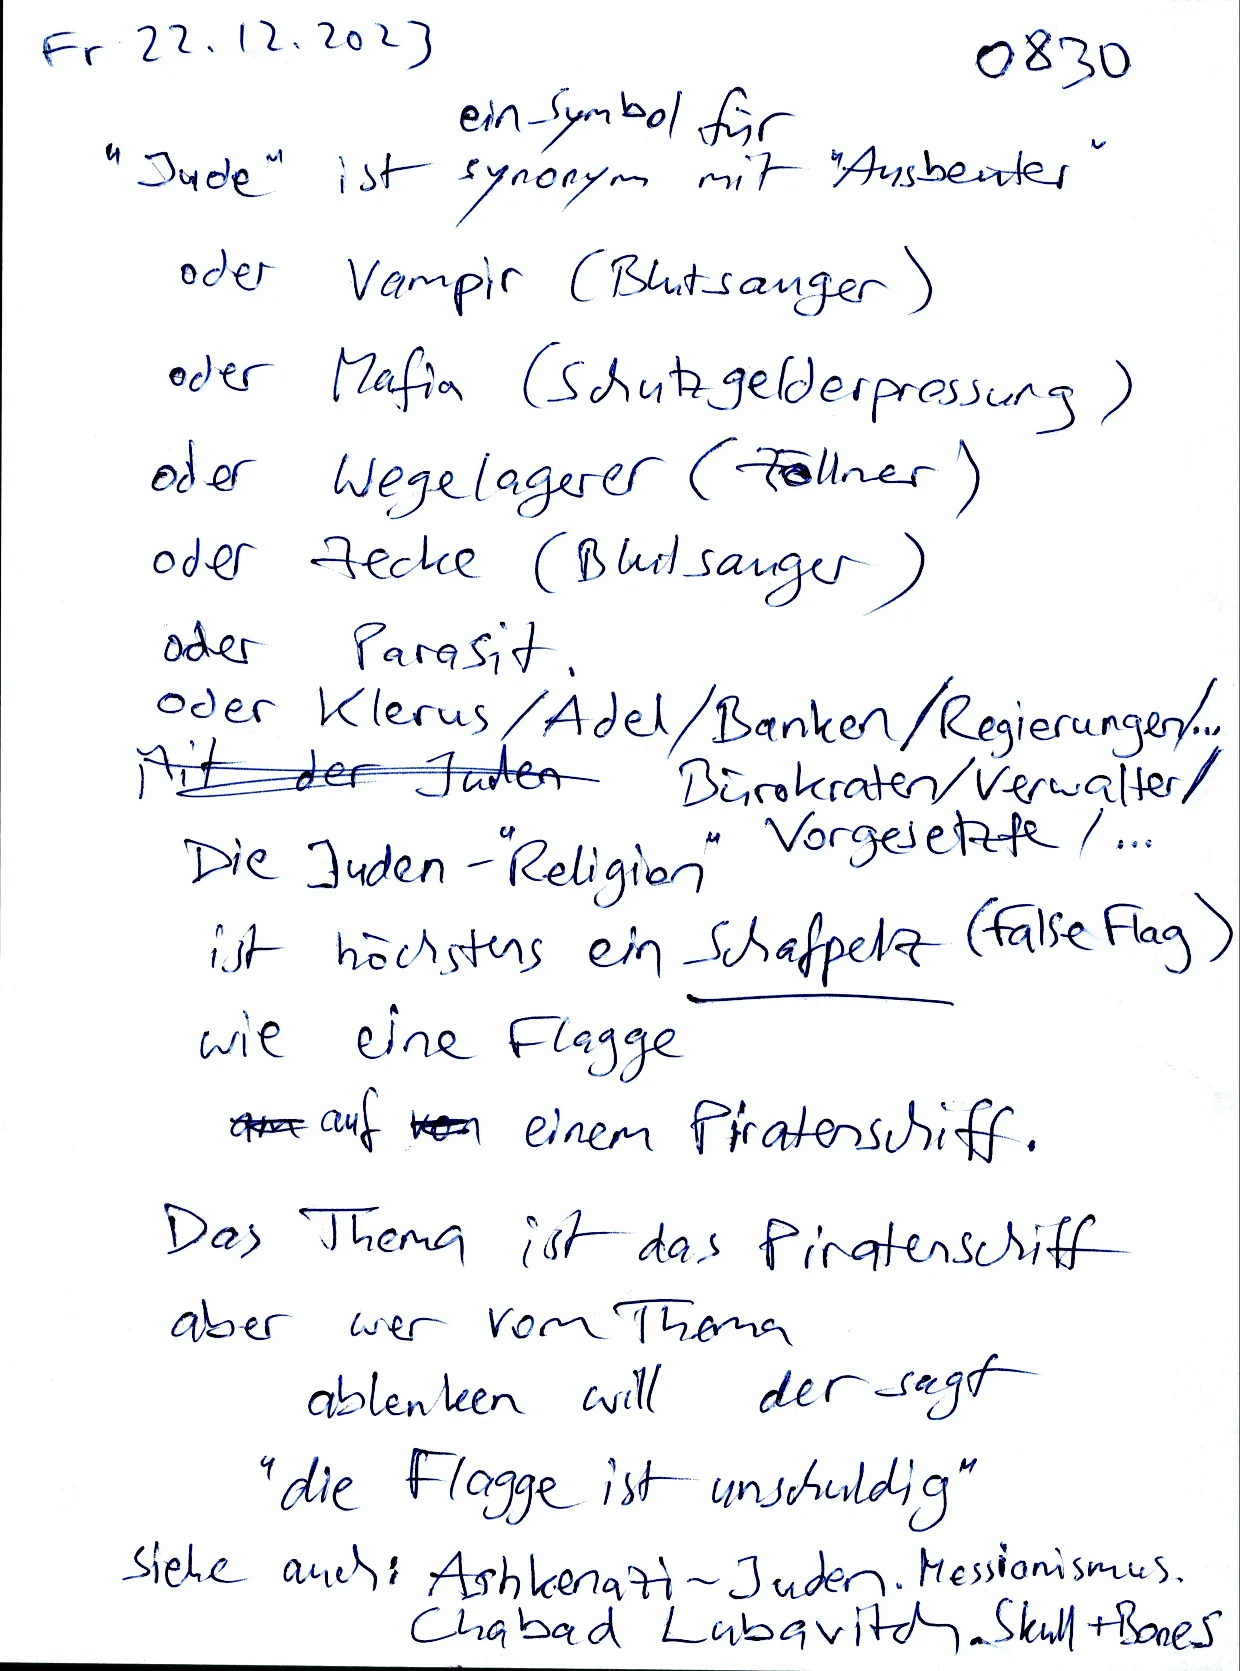 Fr 22.12.2023 0830
ein Symbol für
"Jude" ist synonym mit "Ausbeuter"
oder Vampir (Blutsauger)
oder Mafia (Schutzgelderpressung)
oder Wegelagerer (Zöllner)
oder Zecke (Blutsauger)
oder Parasit.
oder Klerus/Adel/Banken/Regierungen/...
Mit der Juden Bürokraten/Verwalter/
Vorgesetzte/...
Die Juden-"Religion"
ist höchstens ein Schafpelz (False Flag)
wie eine Flagge
auf von einem Piratenschiff.
Das Thema ist das Piratenschiff
aber wer vom Thema
ablenken will der sagt
"die Flagge ist unschuldig"
siehe auch: Ashkenazi-Juden. Messionismus.
Chabad Lubavitch. Skull+Bones